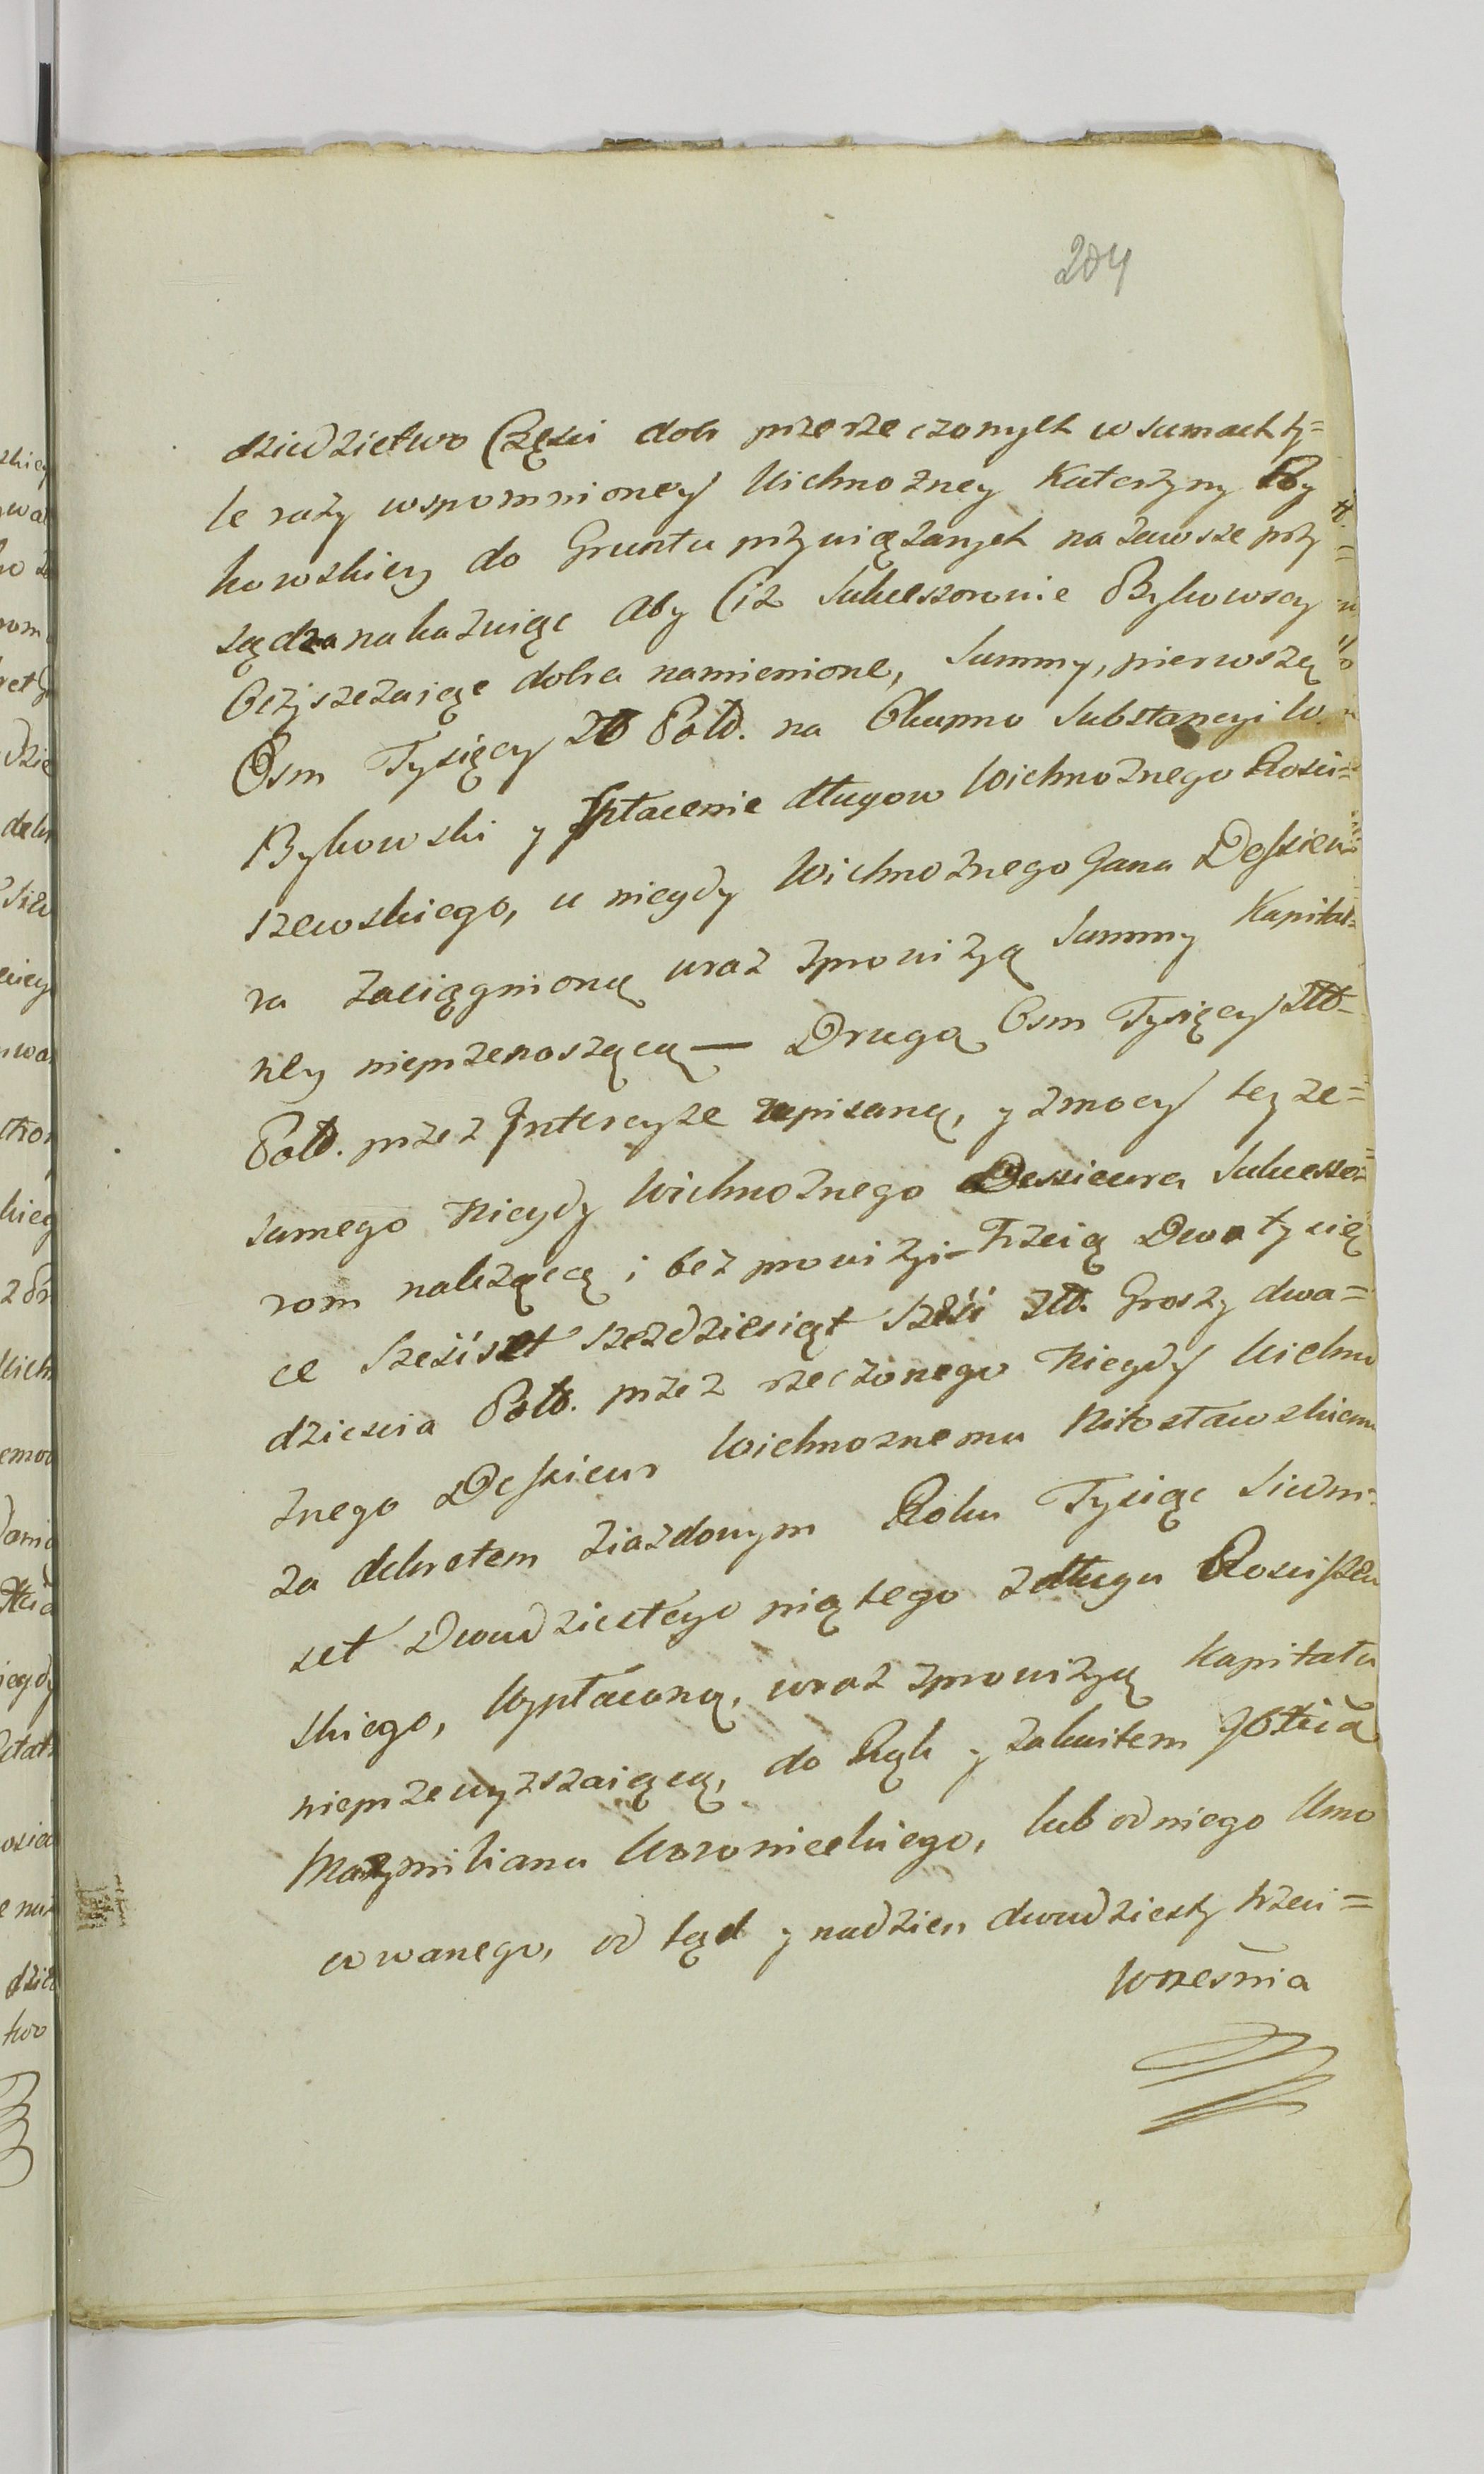 204
dziedzictwo Części dobr przerzeczonych w sumach ty=
le razy wspomnioney Wielmożney Katarzyny By
kowskiey do Gruntu przywiązanych na zawsze przy
sądza nakazuiąc aby Ciż Sukcessorowie Bykowscy
Oczyszczaiąc dobra namienione, Summy, pierwszą
Ośm Tysięcy Zł Pols. na Okupno Substancyi W.
Bykowski y spłacenie długow Wielmożnego Rości=
szewskiego, u niegdy Wielmożnego Jana Dessieu
ra zaciągnioną wraz zprowizyą Summy Kapital=
ney nieprzenoszącą — Drugą Osm Tysięcy Zł
Pols. przez Intercyze zapisaną, y zmocy tey ze=
samego Niegdy Wielmożnego Dessieura Sukcesso=
rom należącą i bez prowizyi – Trzcią Dwa tysią
ce Sześćset szeżdziesiąt sześć Zł. Groszy dwa=
dziescia Pols. przez rzeczonego Niegdy Wielmo
żnego Dessieur Wielmożnemu Miłosławskiemu
za dekretem ziazdowym Roku Tysiąc Siedm
set Dwudziestego piątego zdługu Roscisze
skiego, Wypłaconą, wraz zprowizyą Kapitału
nieprzewyższaiącą, do Rąk y zakwitem JOXcia
Maxymiliana Woronieckiego, lub od niego Umo
cowanego, od tąd y nadzien dwudziesty trzeci=
Wrzesnia